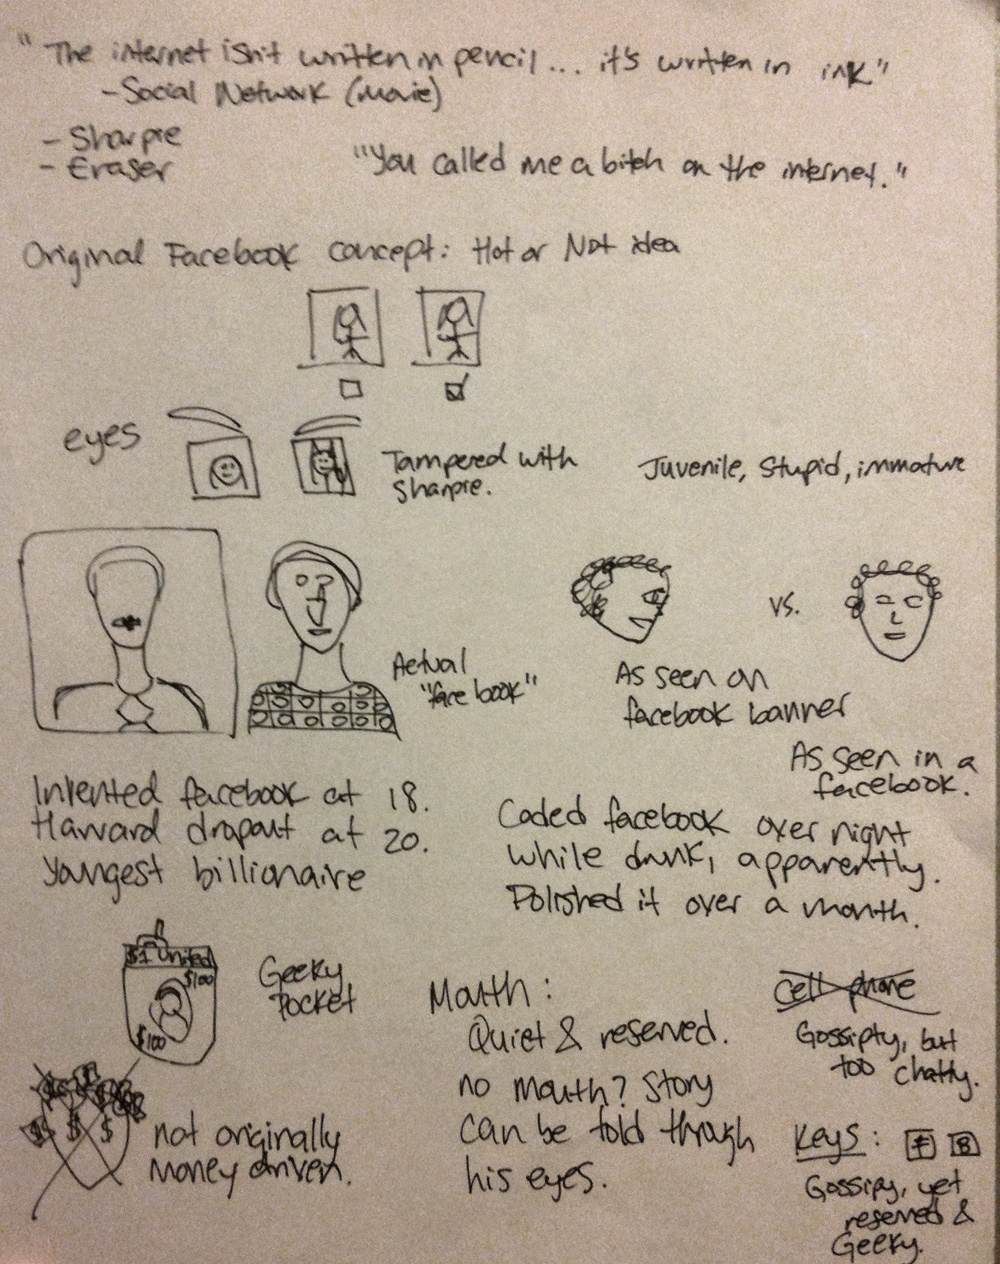 "The internet isn't written in pencil... it's written in ink"
- Social Network (Movie)
- Sharpie
- Eraser
"You called me a bitch on the internet."
Original Facebook concept: Hot or Not idea
eyes
Tampered with
Sharpie.
Juvenile, Stupid, immature
vs.
Actual
"face book"
As seen on
facebook banner
As seen in a
facebook.
Invented facebook at 18.
Harvard dropout at 20.
Youngest billionaire
Coded facebook over night
while drunk, apparently.
Polished it over a month.
$1 United
$100
$100
Geeky
Pocket
Mouth:
Quiet & reserved.
no mouth? Story
can be told through
his eyes.
Cell phone
Gossipty, but
too chatty.
$ $ $
not originally
money driven.
Keys: F B
Gossipy, yet
reserved &
Geeky.